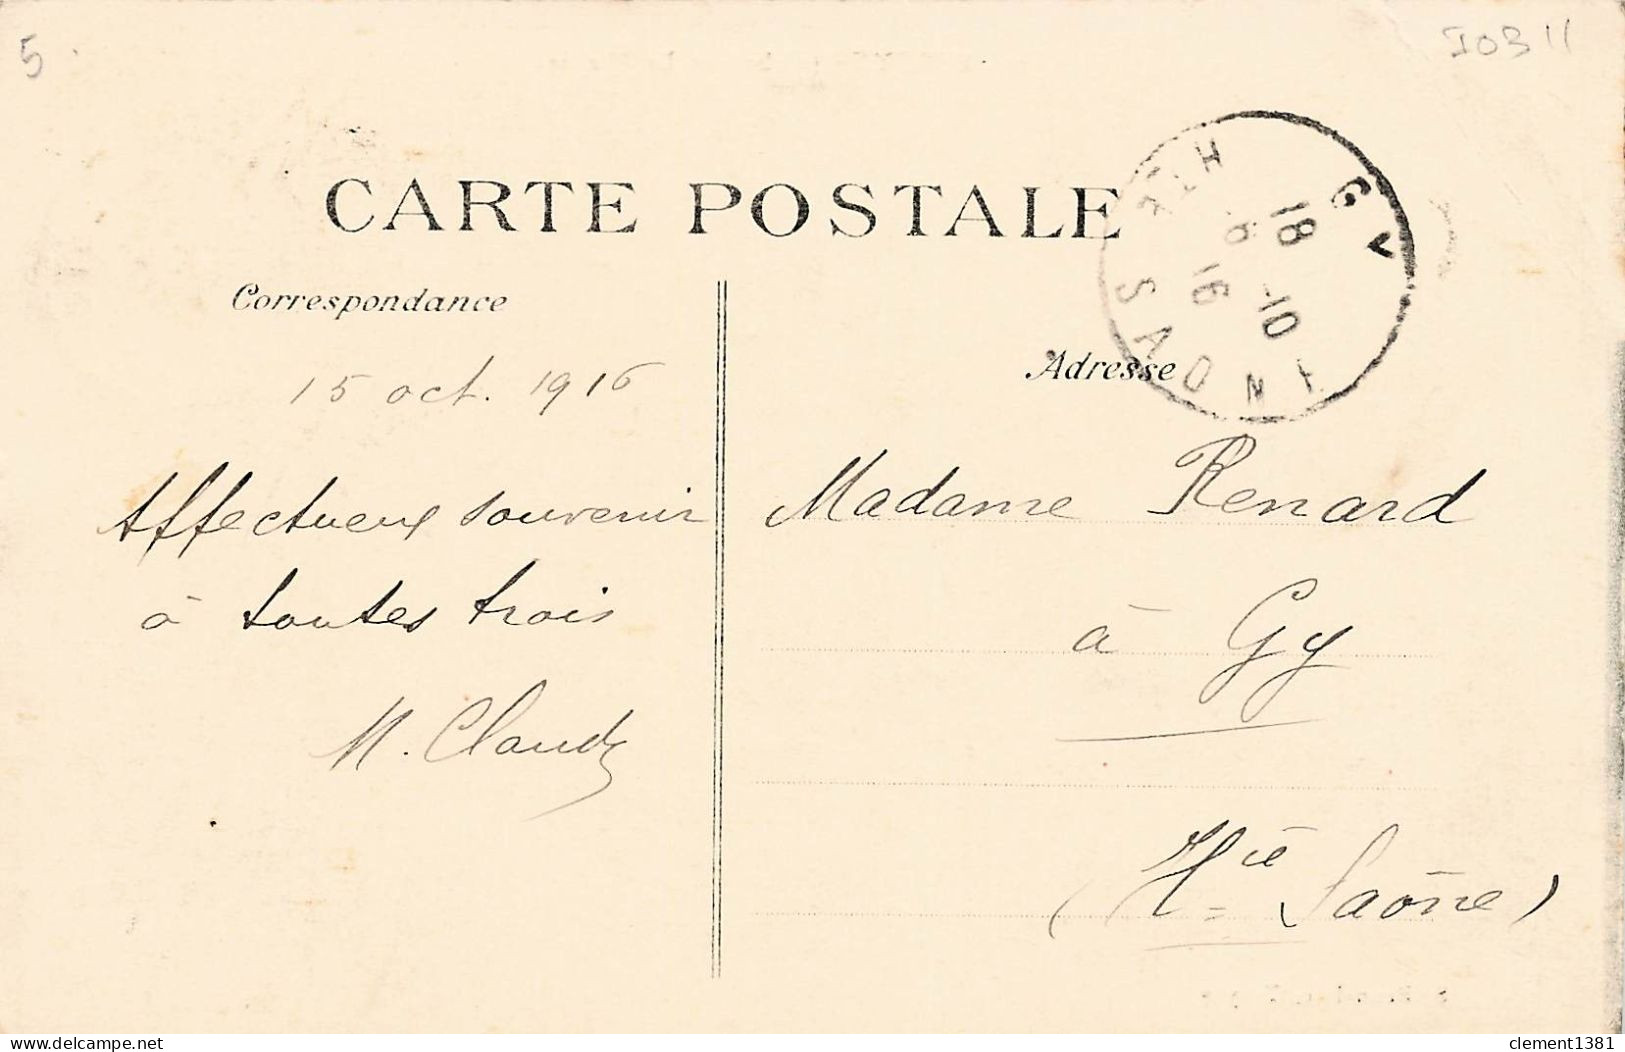 5
CARTE POSTALE
Correspondance
15 oct. 1916
Affectueux souvenir
à toutes trois
M. Claudy
GY
18 -10
16
HTE SAONE
Adresse
Madame Renard
à Gy
(Hte Saône)
delcampe.net
clement1381